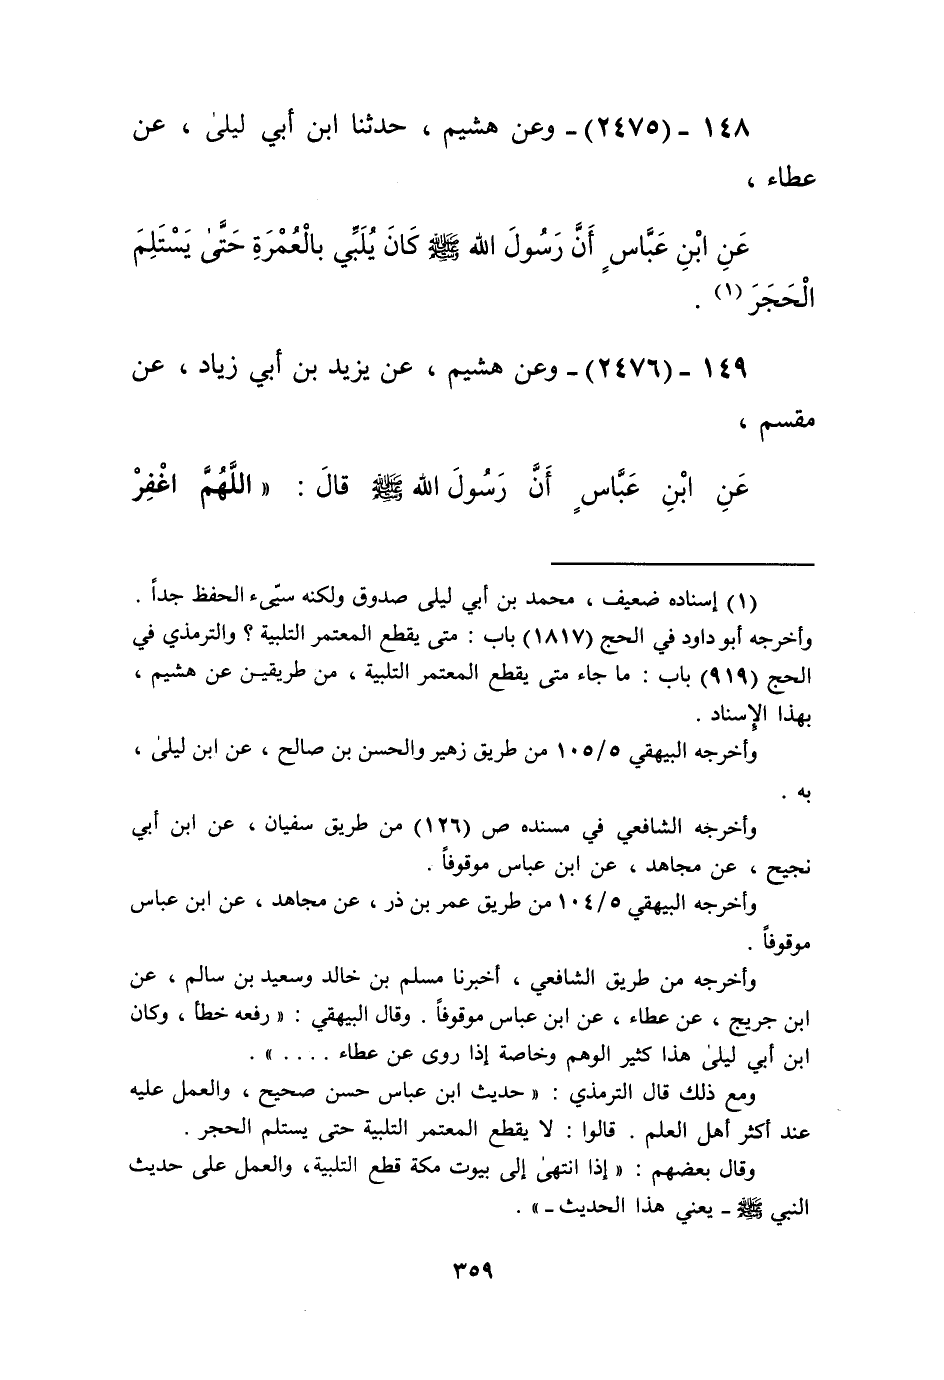 ١٤٨ - (٢٤٧٥) - وعن هشيم ، حدثنا ابن أبي ليلىٰ ، عن
عطاء ،
عَنِ ابْنِ عَبَّاسٍ أَنَّ رَسُولَ الله ﷺ كَانَ يُلَبِّي بالْعُمْرَةِ حَتَّىٰ يَسْتَلِمَ
الْحَجَرَ (١) .
١٤٩ - (٢٤٧٦) - وعن هشيم ، عن يزيد بن أبي زياد ، عن
مقسم ،
عَنِ ابْنِ عَبَّاسٍ أَنَّ رَسُولَ الله ﷺ قالَ : « اللَّهُمَّ اغْفِرْ
(١) إسناده ضعيف ، محمد بن أبي ليلى صدوق ولكنه سيّىء الحفظ جداً .
وأخرجه أبو داود في الحج (١٨١٧) باب : متى يقطع المعتمر التلبية ؟ والترمذي في
الحج (٩١٩) باب : ما جاء متى يقطع المعتمر التلبية ، من طريقين عن هشيم ،
بهذا الإِسناد .
وأخرجه البيهقي ١٠٥/٥ من طريق زهير والحسن بن صالح ، عن ابن ليلىٰ ،
به .
وأخرجه الشافعي في مسنده ص (١٢٦) من طريق سفيان ، عن ابن أبي
نجيح ، عن مجاهد ، عن ابن عباس موقوفاً .
وأخرجه البيهقي ١٠٤/٥ من طريق عمر بن ذر ، عن مجاهد ، عن ابن عباس
موقوفاً .
وأخرجه من طريق الشافعي ، أخبرنا مسلم بن خالد وسعيد بن سالم ، عن
ابن جريج ، عن عطاء ، عن ابن عباس موقوفاً . وقال البيهقي : « رفعه خطأ ، وكان
ابن أبي ليلىٰ هذا كثير الوهم وخاصة إذا روى عن عطاء .... » .
ومع ذلك قال الترمذي : « حديث ابن عباس حسن صحيح ، والعمل عليه
عند أكثر أهل العلم . قالوا : لا يقطع المعتمر التلبية حتى يستلم الحجر .
وقال بعضهم : « إذا انتهىٰ إلى بيوت مكة قطع التلبية، والعمل على حديث
النبي ﷺ - يعني هذا الحديث - » .
٣٥٩